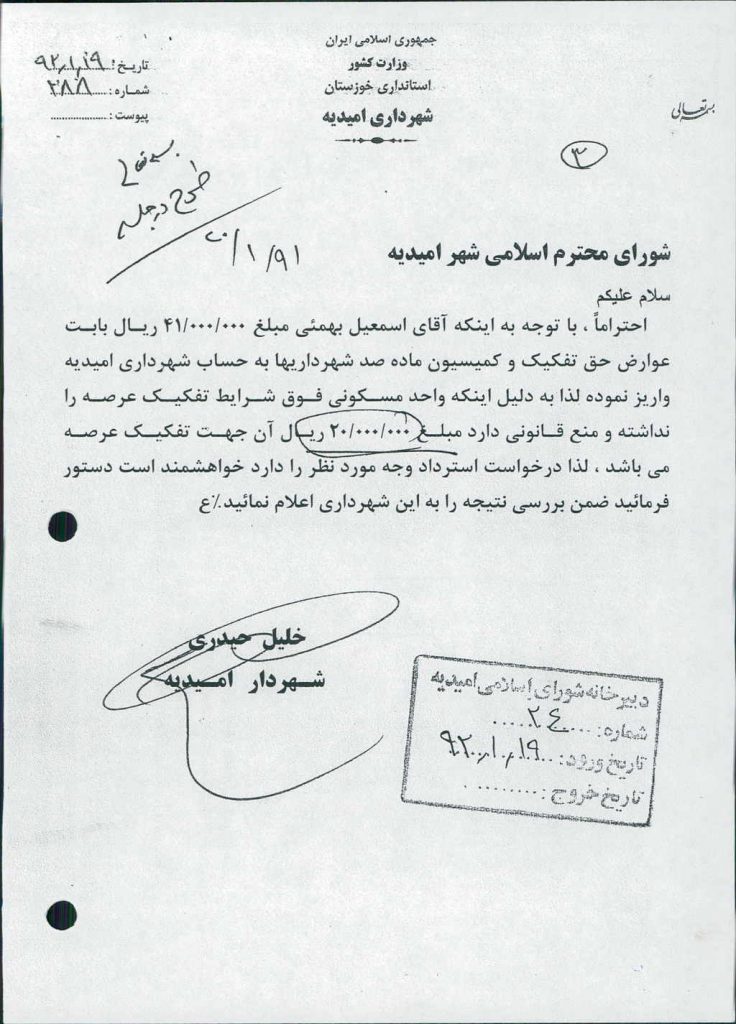 بسمه تعالی
جمهوری اسلامی ایران
وزارت کشور
استانداری خوزستان
شهرداری امیدیه
تاریخ: ۹۲/۱/۱۹
شماره: ۲۸۸
پیوست:
۳
بسمه تعالی
طرح در جلسه
۲۰/۱/۹۱
شورای محترم اسلامی شهر امیدیه
سلام علیکم
احتراماً ، با توجه به اینکه آقای اسمعیل بهمئی مبلغ ۴۱/۰۰۰/۰۰۰ ریال بابت
عوارض حق تفکیک و کمیسیون ماده صد شهرداریها به حساب شهرداری امیدیه
واریز نموده لذا به دلیل اینکه واحد مسکونی فوق شرایط تفکیک عرصه را
نداشته و منع قانونی دارد مبلغ ۲۰/۰۰۰/۰۰۰ ریال آن جهت تفکیک عرصه
می باشد ، لذا درخواست استرداد وجه مورد نظر را دارد خواهشمند است دستور
فرمائید ضمن بررسی نتیجه را به این شهرداری اعلام نمائید./ع
خلیل حیدری
شهردار امیدیه
دبیرخانه شورای اسلامی امیدیه
شماره: ۲۴۰
تاریخ ورود: ۹۲/۱/۱۹
تاریخ خروج: